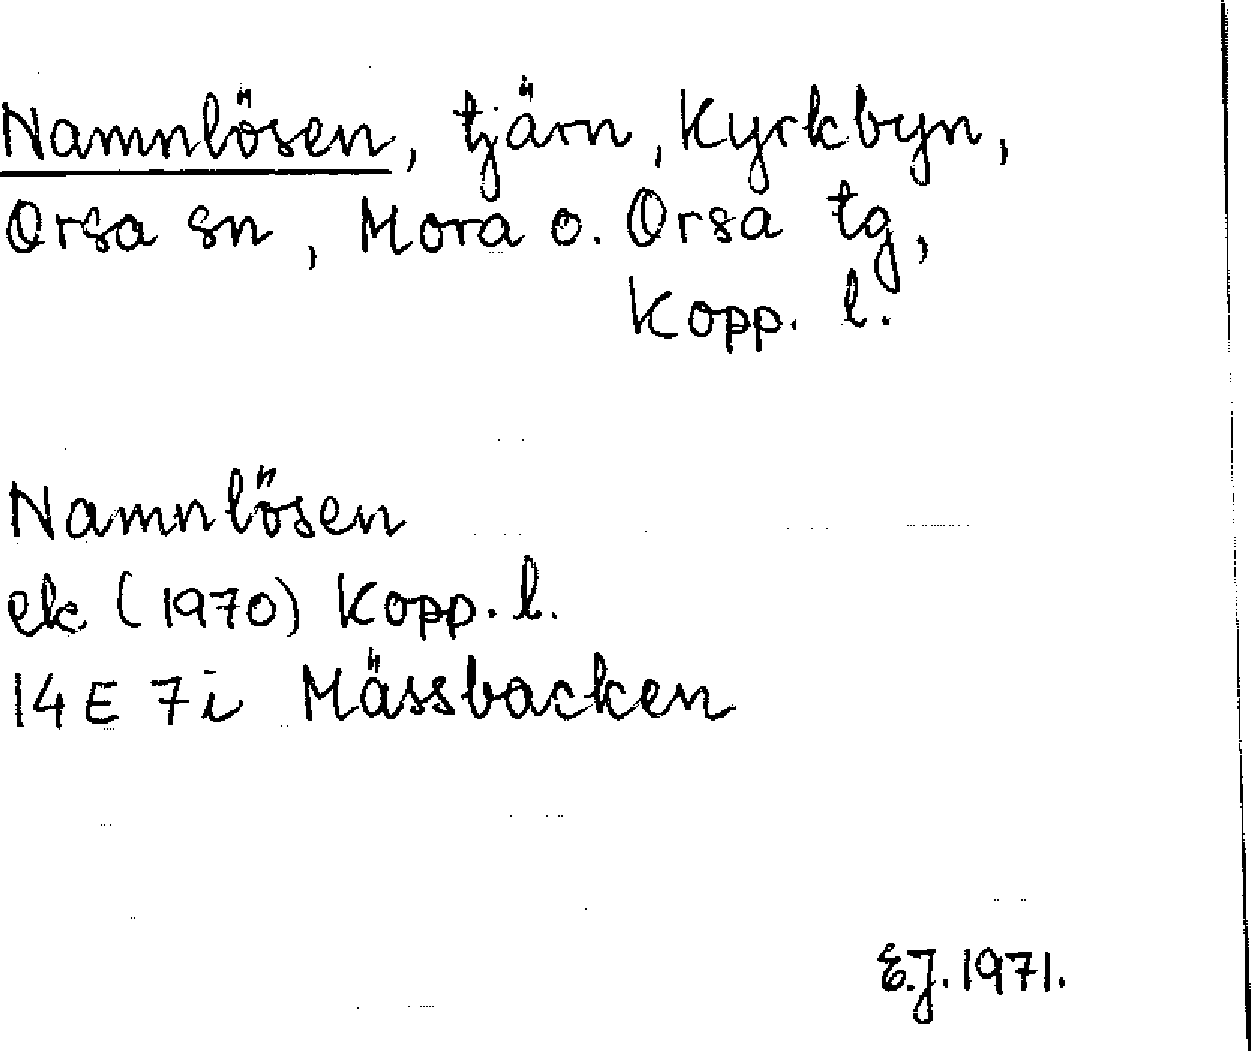 Namnlösen, tjärn, Kyrkbyn,
Orsa sn, Mora o. Orsa tg,
Kopp. l.
Namnlösen
ek (1970) Kopp. l.
14 E 7i Mässbacken
E.J. 1971.